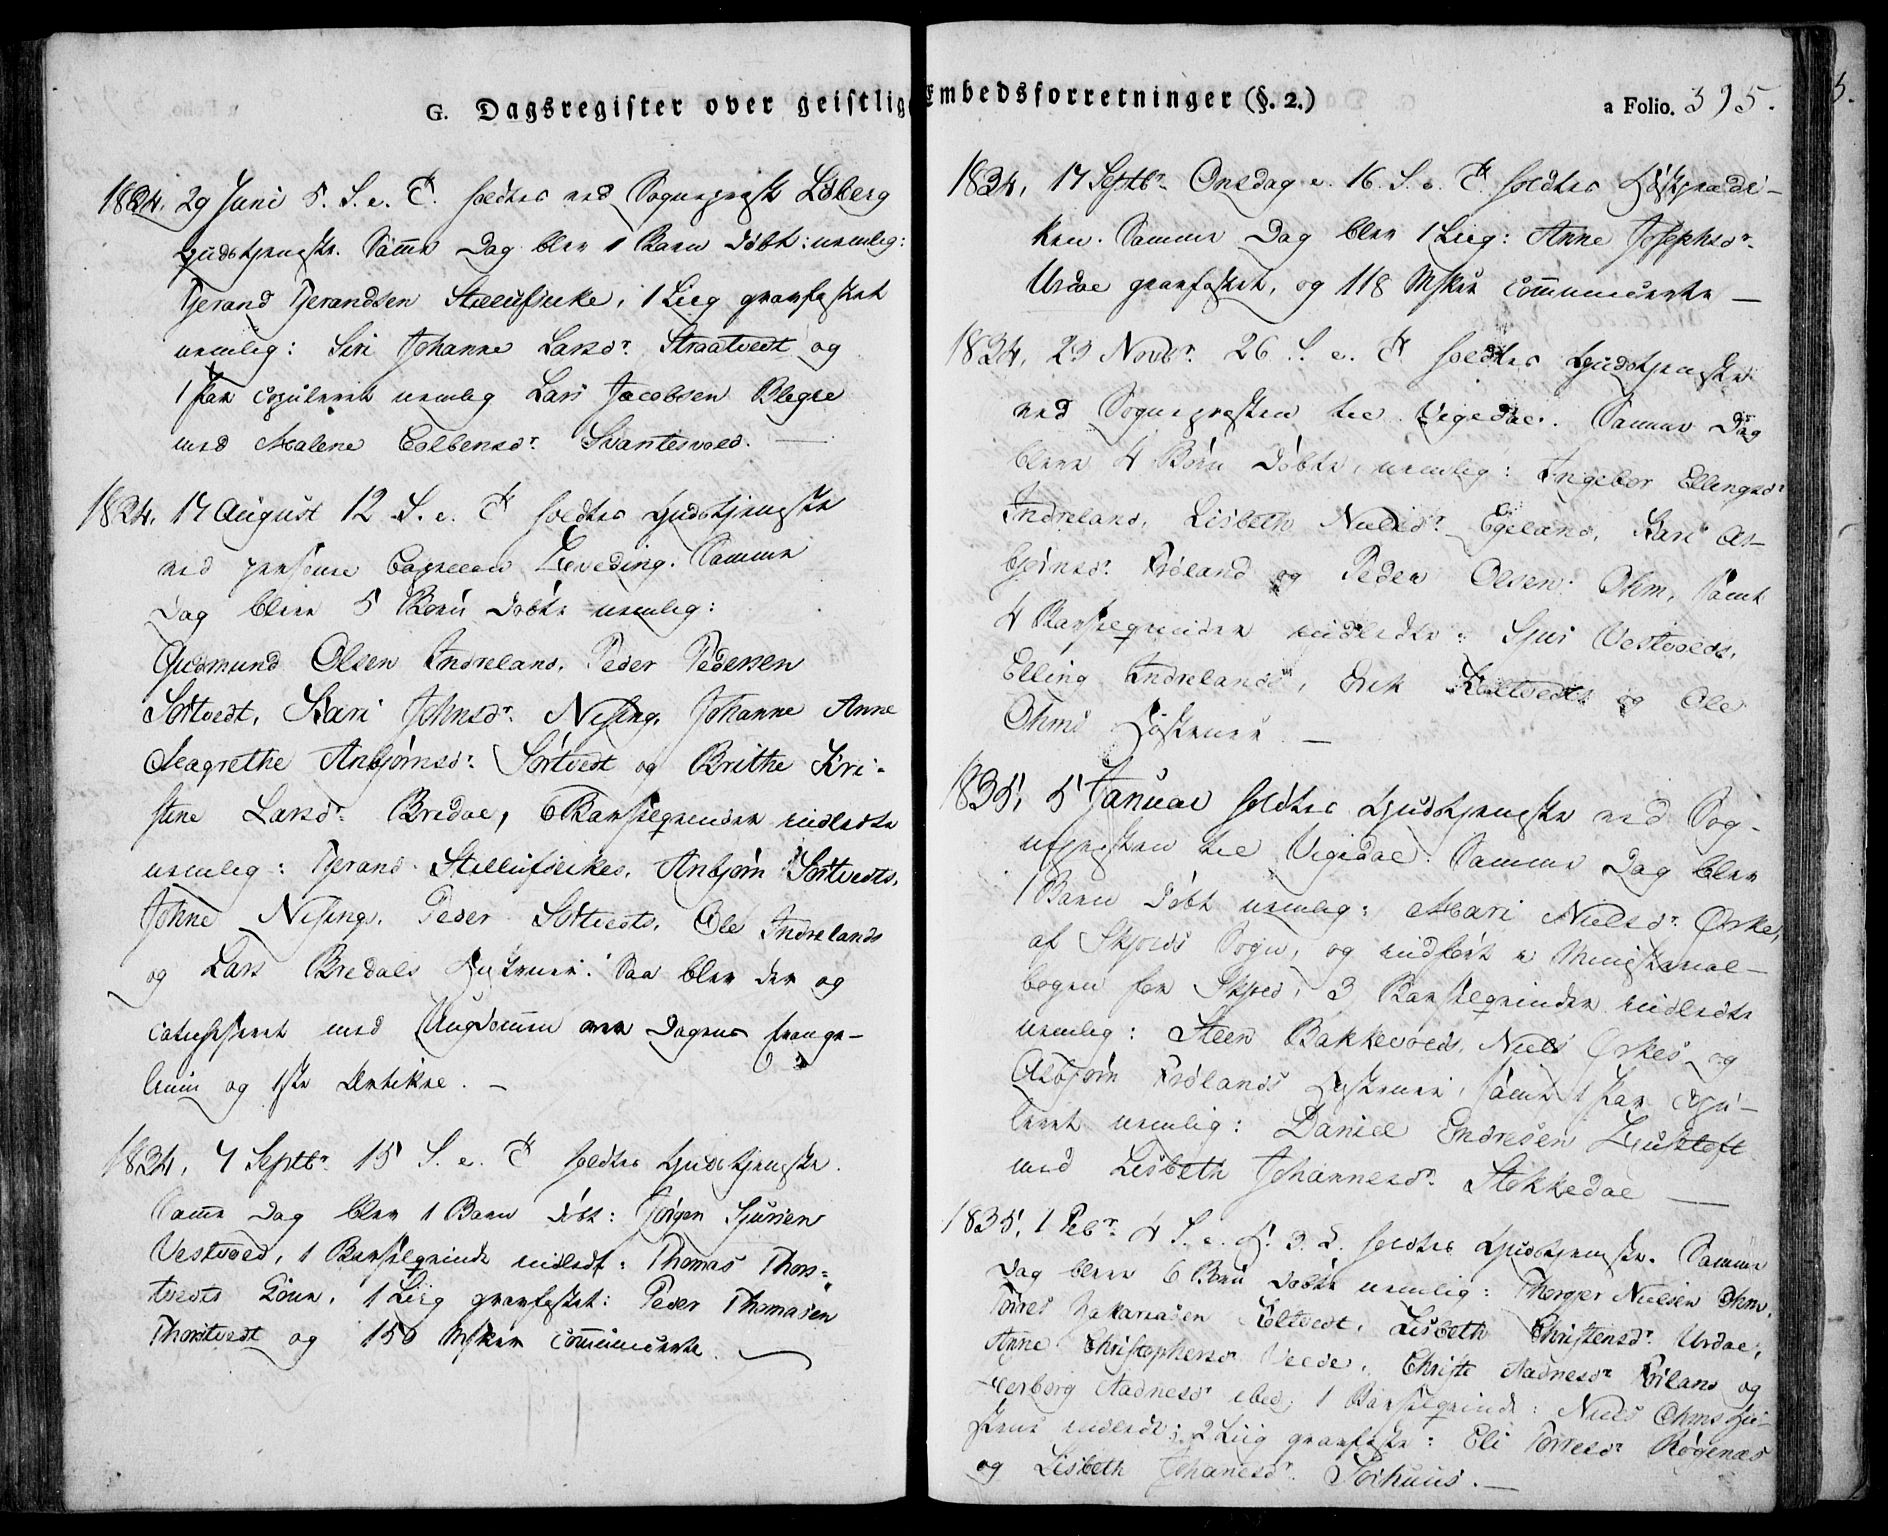 G. Dagsregister over geistlig Embedsforretninger (§. 2.)
a Folio. 395.
1834. 29 Juni 5. S. e. T. holdtes ved Sognepræst Löberg
Gudstjeneste. Samme Dag blev 1 Barn döbt: nemlig:
Tjerand Tjerandsen Stillufjeike, 1 Liig graefæstet
nemlig: Siri Johanne Larsdr. Straatvedt og
1 Par copuleret nemlig Lars Jacobsen Blegie
med Malene Colbensdr. Svantesvold.
1834. 17 August 12 S. e. T. holdtes Gudstjeneste
ved personel Capellan Samme
Dag bleve 5 Börn döbte nemlig:
Gudmund Olsen Indreland, Peder Pedersen
Sörtvedt, Kari Johnsdr. Nesing, Johanne Anne
Magrethe Anbjörnsdr. Sörtvedt og Brithe Kri-
stine Larsdr. Bredal, 6 Barselqvinder indledte
nemlig: Tjerand Stillufjeikes, Anbjörn Sörtvedts,
Johne Nesings, Peder Sörtvedts, Ole Indrelands
og Lars Bredals Hustruer. Saa blev der og
catechiseret med Ungdommen over Dagens Evange-
lium og 1ste Artikel. —
1834. 7 Septbr. 15 S. e. T. holdtes Gudstjeneste.
Samme Dag blev 1 Barn döbt: Jörgen Sjursen
Vestvold, 1 Barselqvinde indledt: Thomas Thors-
tvedts Kone, 1 Liig graefæstet: Peder Thomasen
Thorstvedt og 150 Msker communicerte.
1834. 17 Septbr. Onsdag e. 16. S. e. T. holdtes Höstprædi-
ken. Samme Dag blev 1 Liig: Anne Josephsdr.
Urdal graefæstet, og 118 Msker communicerte —
1834. 23 Novbr. 26 S. e. T. holdtes Gudstjeneste
ved Sognepræsten til Vigedal. Samme Dag
bleve 4 Börn döbte, nemlig: Ingebor Ellingsdr
Indreland, Lisbeth Nielsdr. Egeland, Kari As-
björnsdr. Fröland og Peder Olsen Ohm, samt
4 Barselqvinder indledte: Sjur Vestvolds,
Elling Indrelands, Erik Költvedts og Ole
Ohms Hustruer. —
1835. 5 Januar holdtes Gudstjeneste ved Sog-
nepræsten til Vigedal. Samme Dag blev
1 Barn döbt nemlig: Mari Nielsdr. Ørke,
af Skjolds Sogn, og indfört i Ministerial-
bogen for Skjold, 3 Barselqvinder indledte
nemlig: Steen Bakkevolds, Niels Ørkes og
Asbjörn Frölands Hustruer, samt 1 Par copu-
leret nemlig: Daniel Endresen
med Lisbeth Johannesdr. Stokkedal —
1835. 1 Febr. 4 S. e. H. 3. K. holdtes Gudstjeneste. Samme
Dag bleve 6 Börn döbte nemlig: Thorger Nielsen Ohm,
Torres Zakariasen Költvedt, Lisbeth Christensdr. Urdal,
Anne Christophersdr. Christi Aadnesdr Fröland og
Herborg Aadnesdr ibid; 1 Barselqvinde: Niels Ohms Hu-
strue indledt; 2 Liig graefæste: Eli Torresdr Rögenæs
og Lisbeth Johanesdr. —